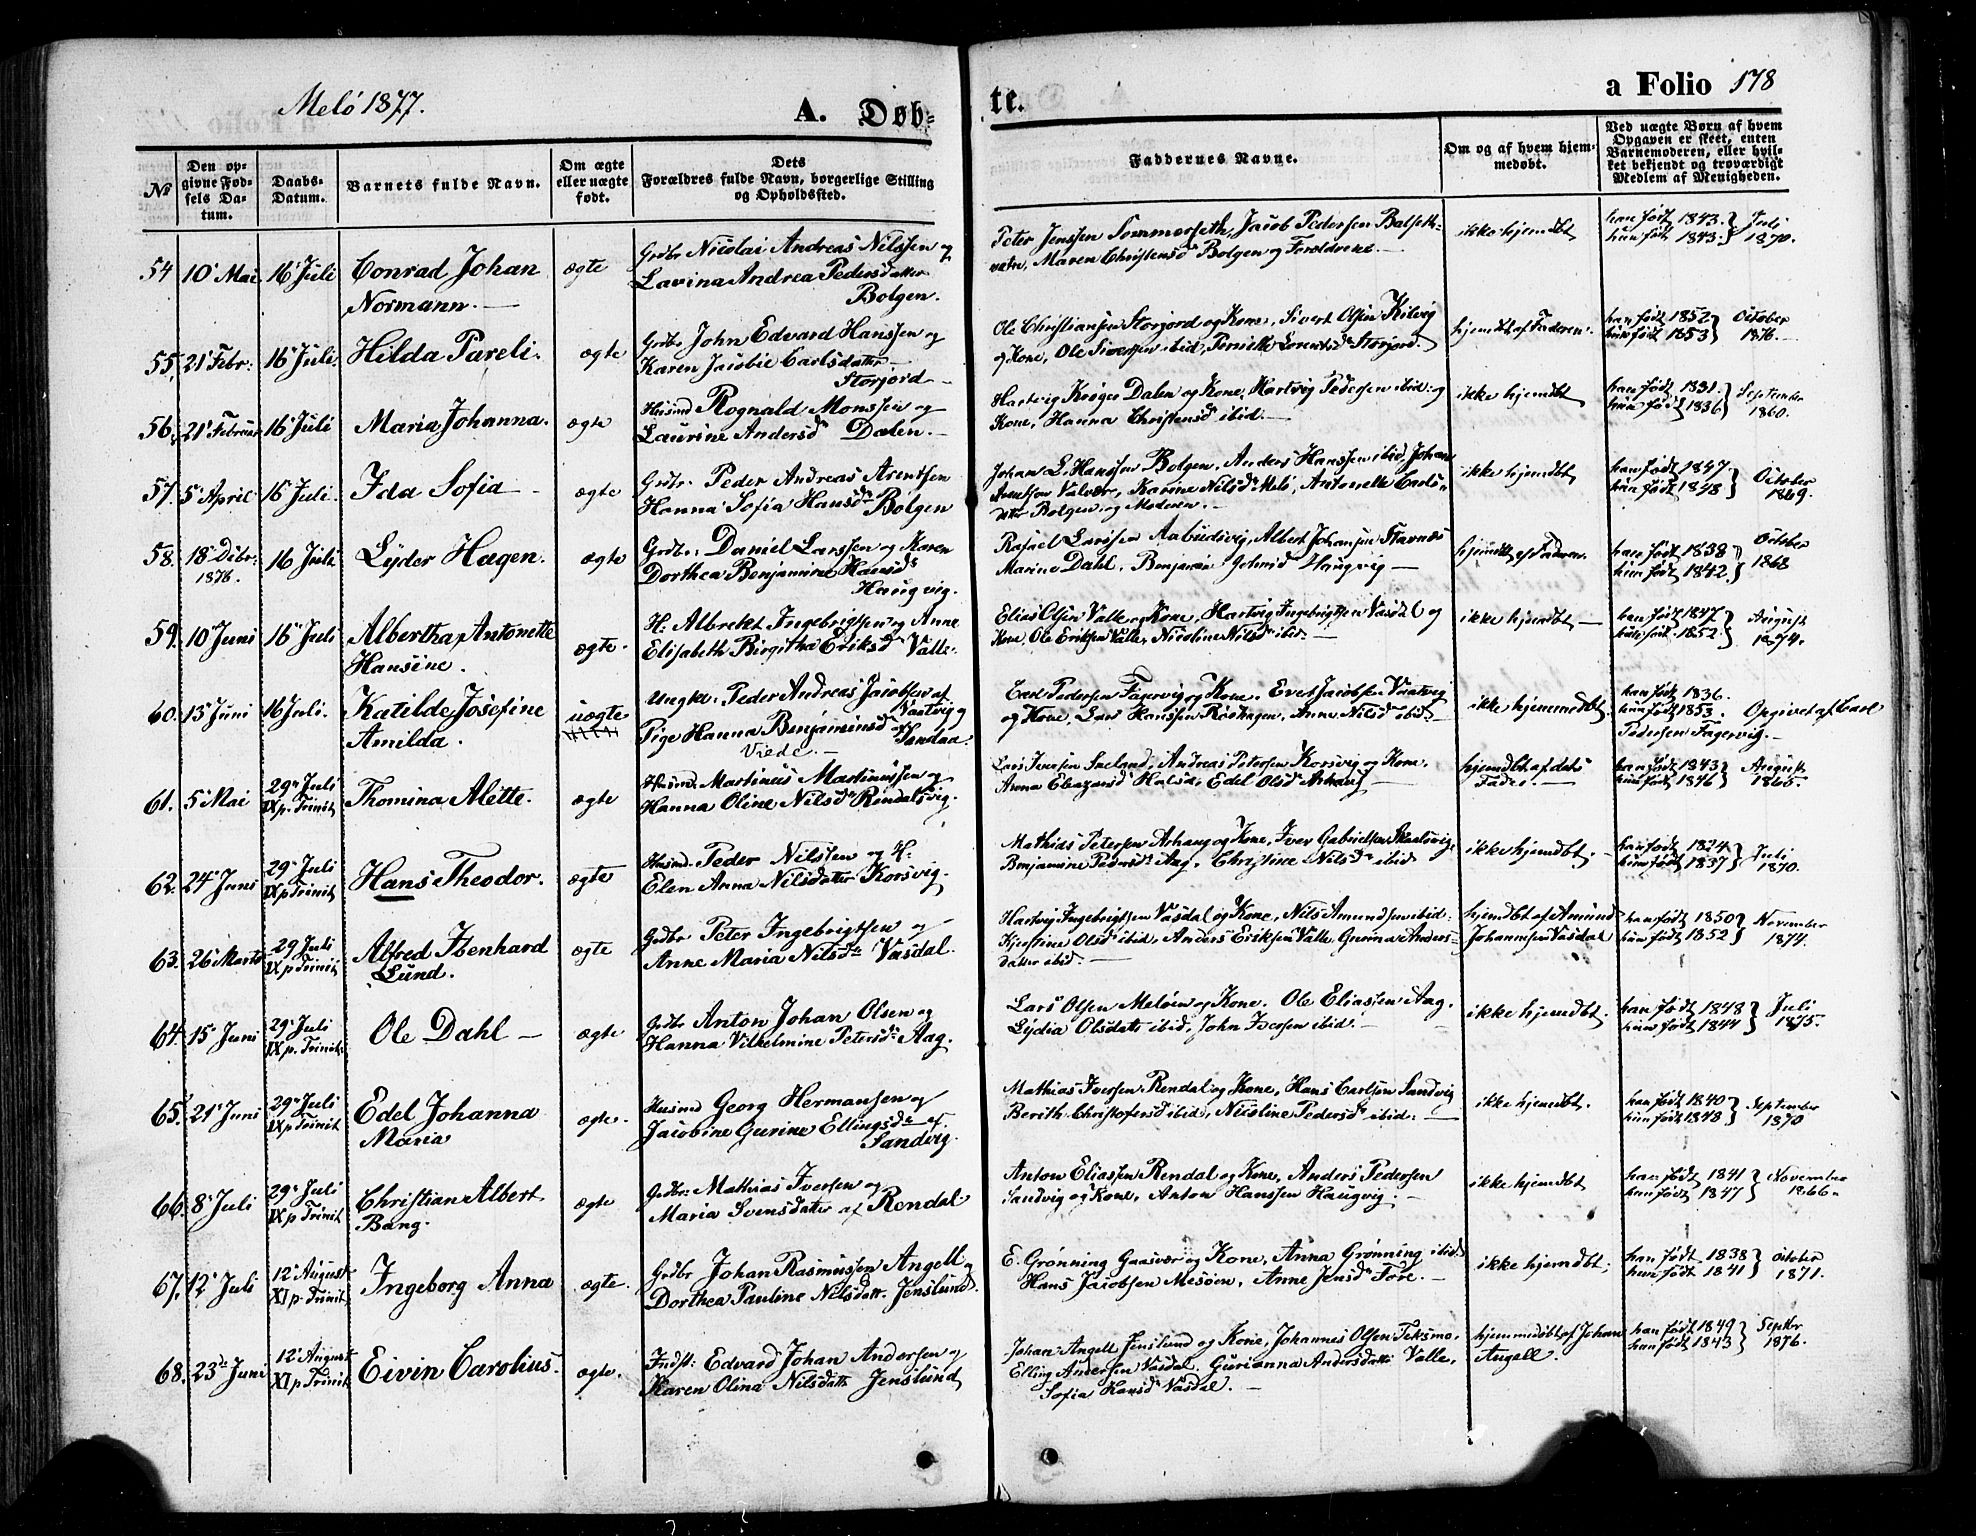 Melö 1877.
A. Døb=
te.
a Folio 178
№
Den op=
givne Fød=
sels Da=
tum.
Daabs=
Datum.
Barnets fulde Navn.
Om ægte
eller uægte
født.
Dets
Forældres fulde Navn, borgerlige Stilling
og Opholdssted.
Faddernes Navne.
Om og af hvem hjem=
medøbt.
Ved uægte Børn af hvem
Opgaven er skeet, enten
Barnemoderen, eller hvil=
ket bekjendt og troværdigt
Medlem af Menigheden.
54 10 Mai 16 Juli Conrad Johan
Normann. —
ægte
Grdbr. Nicolai Andreas Nilssen og
Lavina Andrea Pedersdatter
Bolgen.
Peter Jenssen Sommerseth, Jacob Pedersen Balseth=
vatn, Maren Christensd Bolgen og Forældrene. —
ikke hjemdbt
han født 1843. } Juli
hun født 1843. } 1870.
55. 21 Febr: 16 Juli Hilda Pareli.
ægte
Grdbr. John Edvard Hanssen og
Karen Jacobie Carlsdatter
Storjord —
Ole Christiansen Storjord og Kone, Sivert Olsen Kilvig
og Kone, Ole Sivertsen ibid, Pernille Lorentsd Storjord
hjemdbt af Faderen.
han født 1852 } October
hun født 1853 } 1876. —
56. 21 Februar 16 Juli Maria Johanna.
ægte
Husmd Rognald Monssen og
Laurine Andersd Dalen. —
Hartvig Krøger Dalen og Kone, Hartvig Pedersen ibid: og
Kone, Hanna Christensd ibid. —
ikke hjemdbt
han født 1831. } September
hun født 1836 } 1860.
57. 5 April 16 Juli. Ida Sofia —
ægte
Grdbr. Peder Andreas Arentsen
Hanna Sofia Hansd Bolgen
Johan L. Hanssen Bolgen, Anders Hanssen ibid, Johan
Arentsen Valvær, Karine Nilsd Melö, Antonette Carls=
datter Bolgen, og Moderen. —
ikke hjemdbt
han født 1847. } October
hun født 1848 } 1869.
58. 18 Debr: 16 Juli Lyder Hagen.
1876.
ægte
Grdbr: Daniel Larssen og Karen
Dorthea Benjamine Hansd
Haugvig.
Rafael Larssen Aabudsvig, Albert Johansen Stavnæs
Marine Dahl, Benjamin Haugvig —
hjemdbt af Faderen.
han født 1838 } October
hun født 1842. } 1868
59. 10 Juni 16 Juli Albertha Antonette
Hansine.
ægte.
H: Albrekt Ingebrigtsen og Anne
Elisabeth Birgitha Eriksd Valle.
Elias Olsen Valle og Kone, Hartvig Ingebrigtsen Vasdal og
Kone, Ole Eriksen Valle, Nicoline Nilsd ibid —
ikke hjemdbt —
han født 1847. } August
hun født. 1852. } 1874.
60. 13 Juni 16 Juli. Katilde Josefine
Amilda.
uægte
Ungkr. Peder Andreas Jacobsen af
Vaatvig og
Pige Hanna Benjaminsd Sandaa.
Viede. —
Carl Pedersen Fagervig og Kone. Evert Jacobsen Vaatvig
og Kone, Lars Hanssen Röshagen, Anne Nilsd ibid —
ikke hjemmedbt
han født 1836.
hun født 1853. Opgivet af Carl
Pedersen Fagervig. —
61. 5 Mai 29 Juli
IX p. Trinit
Thomina Alette.
ægte
Husmd. Martinus Martinussen og
Hanna Oline Nilsd Rendalsvig.
Lars Iversen Sneland, Andreas Petersen Korsvig og Kone,
Anna Eleazersd Halsa, Edel Olsd Arhaug —
hjemdbt af dets
Fader. —
han født 1843 } August
hun født 1846 } 1865.
62. 24 Juni 29 Juli
IX p Trinit
Hans Theodor.
ægte
Husmd. Peder Nilssen og H:
Elen Anna Nilsdatter Korsvig.
Mathias Petersen Arhaug og Kone, Iver Gabrielsen Skaalsvig,
Benjamine Pedersd Aag, Christine Nilsd ibid
ikke hjemdbt. —
han født 1824. } Juli
hun født 1837 } 1870.
63. 26 Marts 29 Juli
IX p Trinit
Alfred Ibenhard
Lund.
ægte
Grdbr Peter Ingebrigtsen og
Anne Maria Nilsd Vasdal.
Hartvig Ingebrigtsen Vasdal og Kone, Nils Amundsen ibid
Kjerstine Olsd ibid, Anders Eriksen Valle, Gurina Anders=
datter ibid. —
hjemdbt af Amund
Johannesen Vasdal
han født 1850 } November
hun født 1852 } 1874.
64. 15 Juni 29 Juli
IX p. Trinit:
Ole Dahl —
ægte
Grdbr Anton Johan Olsen og
Hanna Vilhelmine Petersd Aag.
Lars Olsen Melöen og Kone. Ole Eliassen Aag.
Lydia Olsdatr ibid, John Iversen ibid. —
ikke hjemdbt.
han født 1848 } Juli
hun født 1844 } 1875.
65 21 Juni 29 Juli
IX p Trinit
Edel Johanna
Maria
ægte.
Husmd Georg Hermansen og
Jacobine Gurine Ellingsd af
Sandvig.
Mathias Iversen Rendal og Kone, Hans Carlsen Sandvig
Berith Christofersd ibid, Nicoline Pedersd ibid: —
ikke hjemdbt.
han født 1840 } September
hun født 1848 } 1870
66 8 Juli 29 Juli
IX p Trinit
Christian Albert
Bang.
ægte
Grdbr: Mathias Iversen og
Maria Svensdatter af Rendal
Anton Eliassen Rendal og Kone, Anders Pedersen
Sandvig og Kone, Anton Hanssen Haugvig. —
ikke hjemdbt
han født 1841 } November
hun født 1847 } 1866.
67. 12 Juli 12 August
XI p. Trinit
Ingeborg Anna
ægte.
Grdbr Johan Rasmussen Angell og
Dorthea Pauline Nilsdatt. Jenslund.
E. Grønning Gaasvær og Kone, Anna Grønning ibid
Hans Jacobsen Mesöen, Anne Jensd Fore. —
ikke hjemdbt;
han født 1838 } October
hun født 1841 } 1871.
68. 23de Juni 12 August
XI p Trinit
Eivin Carolius.
ægte.
Indst: Edvard Johan Andersen og
Karen Olina Nilsdattr Jenslund
Johan Angell Jenslund og Kone, Johannes Olsen Teksmo,
Elling Andersen Vasdal. Gurianna Andersdattr Valle,
Sofia Hansd Vasdal. —
hjemmedøbt af Johan
Angell.
han født 1849 } Septbr
hun født 1843 } 1876.